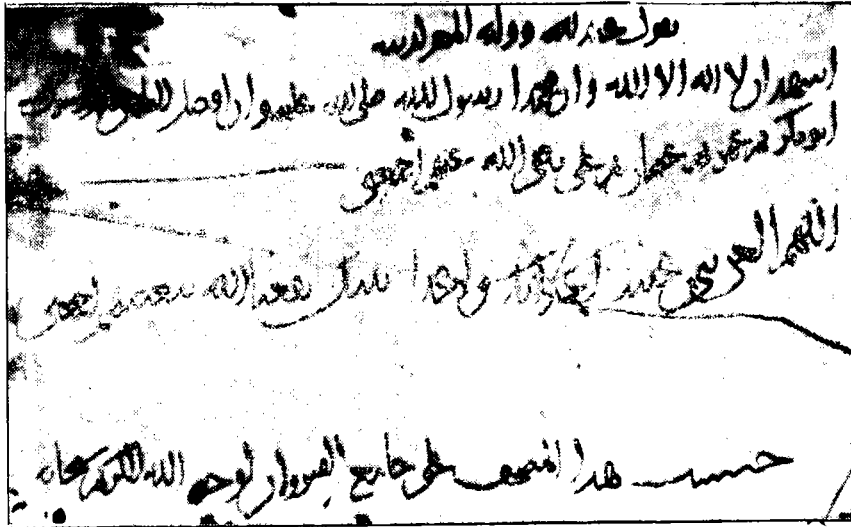 يقول عبد لله ووليه المعز لدينه
اشهد ان لا اله الا الله وان محمدا رسول الله صلى الله عليه وان افضل الناس بعد رسوله
ابو بكر ثم عمر ثم عثمان ثم علي رضي الله عنهم اجمعين
اللهم العن بني عبيد اعداءك واعداء نبيك نفعنا الله ببغضهم اجمعين
حبست هذا المصحف على جامع القيروان لوجه الله الكريم سبحانه